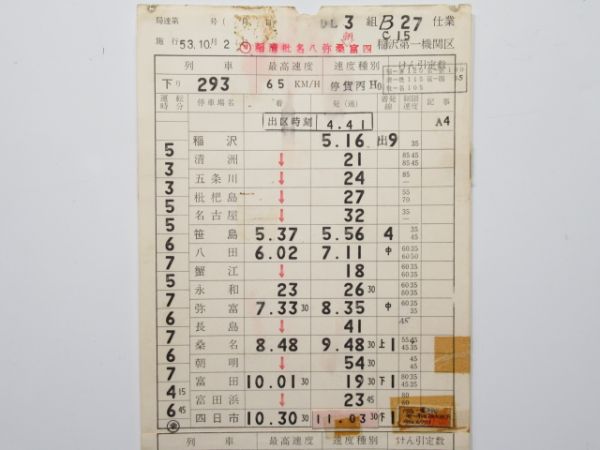 局達第 号( 月 日) DL 3 組 B27 仕業
C15
施行 53.10.2 稲清枇名八弥桑富四 稲沢第一機関区
列車 最高速度 速度種別 けん引定数
下り 293 65 KM/H 停貨丙H0
運転時分 停車場名 着 発(通) 着発線 制限速度 記事
出区時刻 4.41 A4
稲沢 5.16 出9 35
5 清洲 ↓ 21 85 45
3 五条川 ↓ 24 85
3 枇杷島 ↓ 27 55 70
5 名古屋 ↓ 32 35
5 笹島 5.37 5.56 4 60 35
6 八田 6.02 7.11 中 60 35
7 蟹江 ↓ 18 60 35
5 永和 23 26 30 60 35
7 弥富 7.33 30 8.35 中 60 35
6 長島 ↓ 41 45
7 桑名 8.48 9.48 30 上1
6 朝明 ↓ 54 30
7 富田 10.01 30 19 30 下1
4 15 富田浜 ↓ 23 45
6 45 四日市 10.30 30 11.03 30 下1
列車 最高速度 速度種別 けん引定数